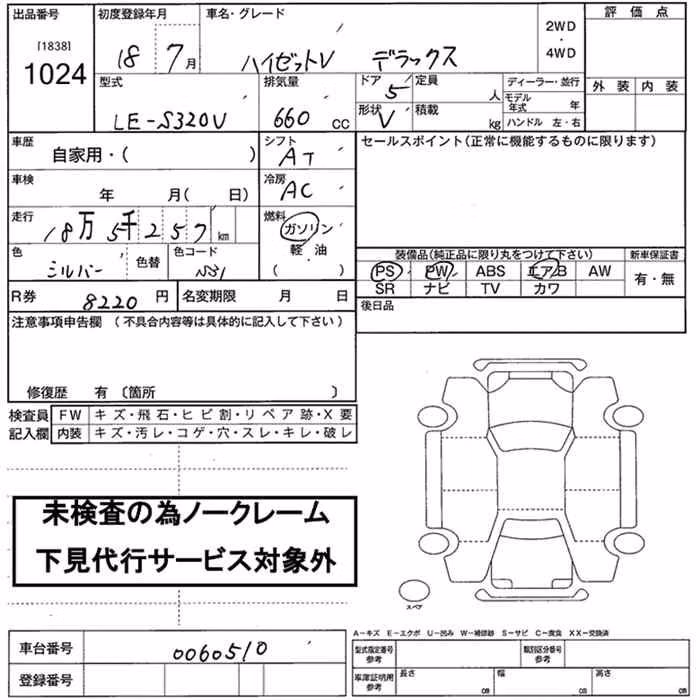 出品番号 初度登録年月 車名・グレード 2WD・4WD 評価点
[1838]
1024 18 7月 ハイゼットV デラックス
外装 内装
型式 排気量 ドア 定員 ディーラー・並行
LE-S320V 660 CC 5 人 モデル年式 年
形状 積載 ハンドル 左・右
V kg
車歴 シフト セールスポイント(正常に機能するものに限ります)
自家用・( ) AT
車検 冷房
年 月( 日) AC
走行 燃料
18万 5千 2 5 7 km ガソリン
色 色替 色コード 軽・油
シルバー N31 ( )
装備品(純正品に限り丸をつけて下さい) 新車保証書
PS PW ABS エアB AW 有・無
SR ナビ TV カワ
R券 8220 円 名変期限 月 日 後日品
注意事項申告欄 (不具合内容等は具体的に記入して下さい)
修復歴 有 〔箇所 〕
検査員 FW キズ・飛石・ヒビ割・リペア跡・X要
記入欄 内装 キズ・汚レ・コゲ・穴・スレ・キレ・破レ
未検査の為ノークレーム
下見代行サービス対象外
スペア
A-キズ E-エクボ U-凹み W-補修跡 S-サビ C-腐食 XX-交換済
車台番号 0060510 型式指定番号 参考 類別区分番号 参考
登録番号 車庫証明用 参考 長さ cm 幅 cm 高さ cm